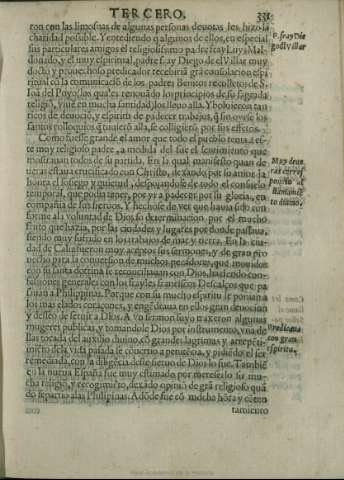 TERCERO. 331
ron con las limosnas de algunas personas deuotas les hizo la
charidad possible. Y entēdiendo q̄ algunos de ellos, en especial
sus particulares amigos el religiosissimo padre fray Luys Mal
donado, y el muy espiritual, padre fray Diego de el Villar muy
docto y prouechoso predicador recebirā grā consolacion espi
ritual cō la comunicaciō de los padres
P. fray Die
go d'l Villar
religiō, viuē en mucha santidad, los lleuo alla. Y boluieron tan
ricos de deuociō, y espiritu de padecer trabajos,
santos colloquios q̄ tuuierō alla, se colligierō por sus efetos.
Como fuesse grande el amor que todo el pueblo tenia a es-
te muy religioso padre, a medida del fue el sentimiento que
mostrauan todos de su partida. En la qual manifesto quan de
ueras estaua crucificado con Christo, dexando por su amor la
honra el sossiego y quietud, despojandose de todo el consuelo
temporal, que podia tener, por yr a padecer por su gloria, en
compañia de sus sieruos. Y hechose de ver que hauia sido con
forme a la voluntad de Dios su determinacion por el mucho
fruto que hazia, por las ciudades y lugares por donde passaua,
siendo muy sufrido en los trabajos de mar y tierra. En la ciu-
dad de Caliz fueron muy aceptos sus sermones, y de gran pro
uecho para la conuersion de muchos pecadores, que mouidos
con su santa dotrina se reconciliauan con Dios, haziendo con-
fessiones generales con los frayles franciscos Descalços que pa
sauan a Philippinas. Porque con su mucho espiritu se ponian a
los mas elados coraçones, y engēdraua en ellos gran deuocion
y desseo de seruir a Dios. A vn sermon suyo traxeron algunas
mugeres publicas y tomandole Dios por instrumento, vna de
llas tocada del auxilio diuino, cō grandes lagrimas y arrepēti-
miēto dela vida passada se cōuertio a penitēcia, y pidiēdo el ser
remediada, con la diligēcia deste sieruo de Dios lo fue. Tambiē
en la nueua España fue muy estimado por merecerlo su mu-
cha religiō, y recogimiēto, dexādo opiniō de grā religioso quā
do se partio a las Philipinas. Adōde fue cō mucho hōra y cōten
tamiento
Predicaua
con gran
espiritu.